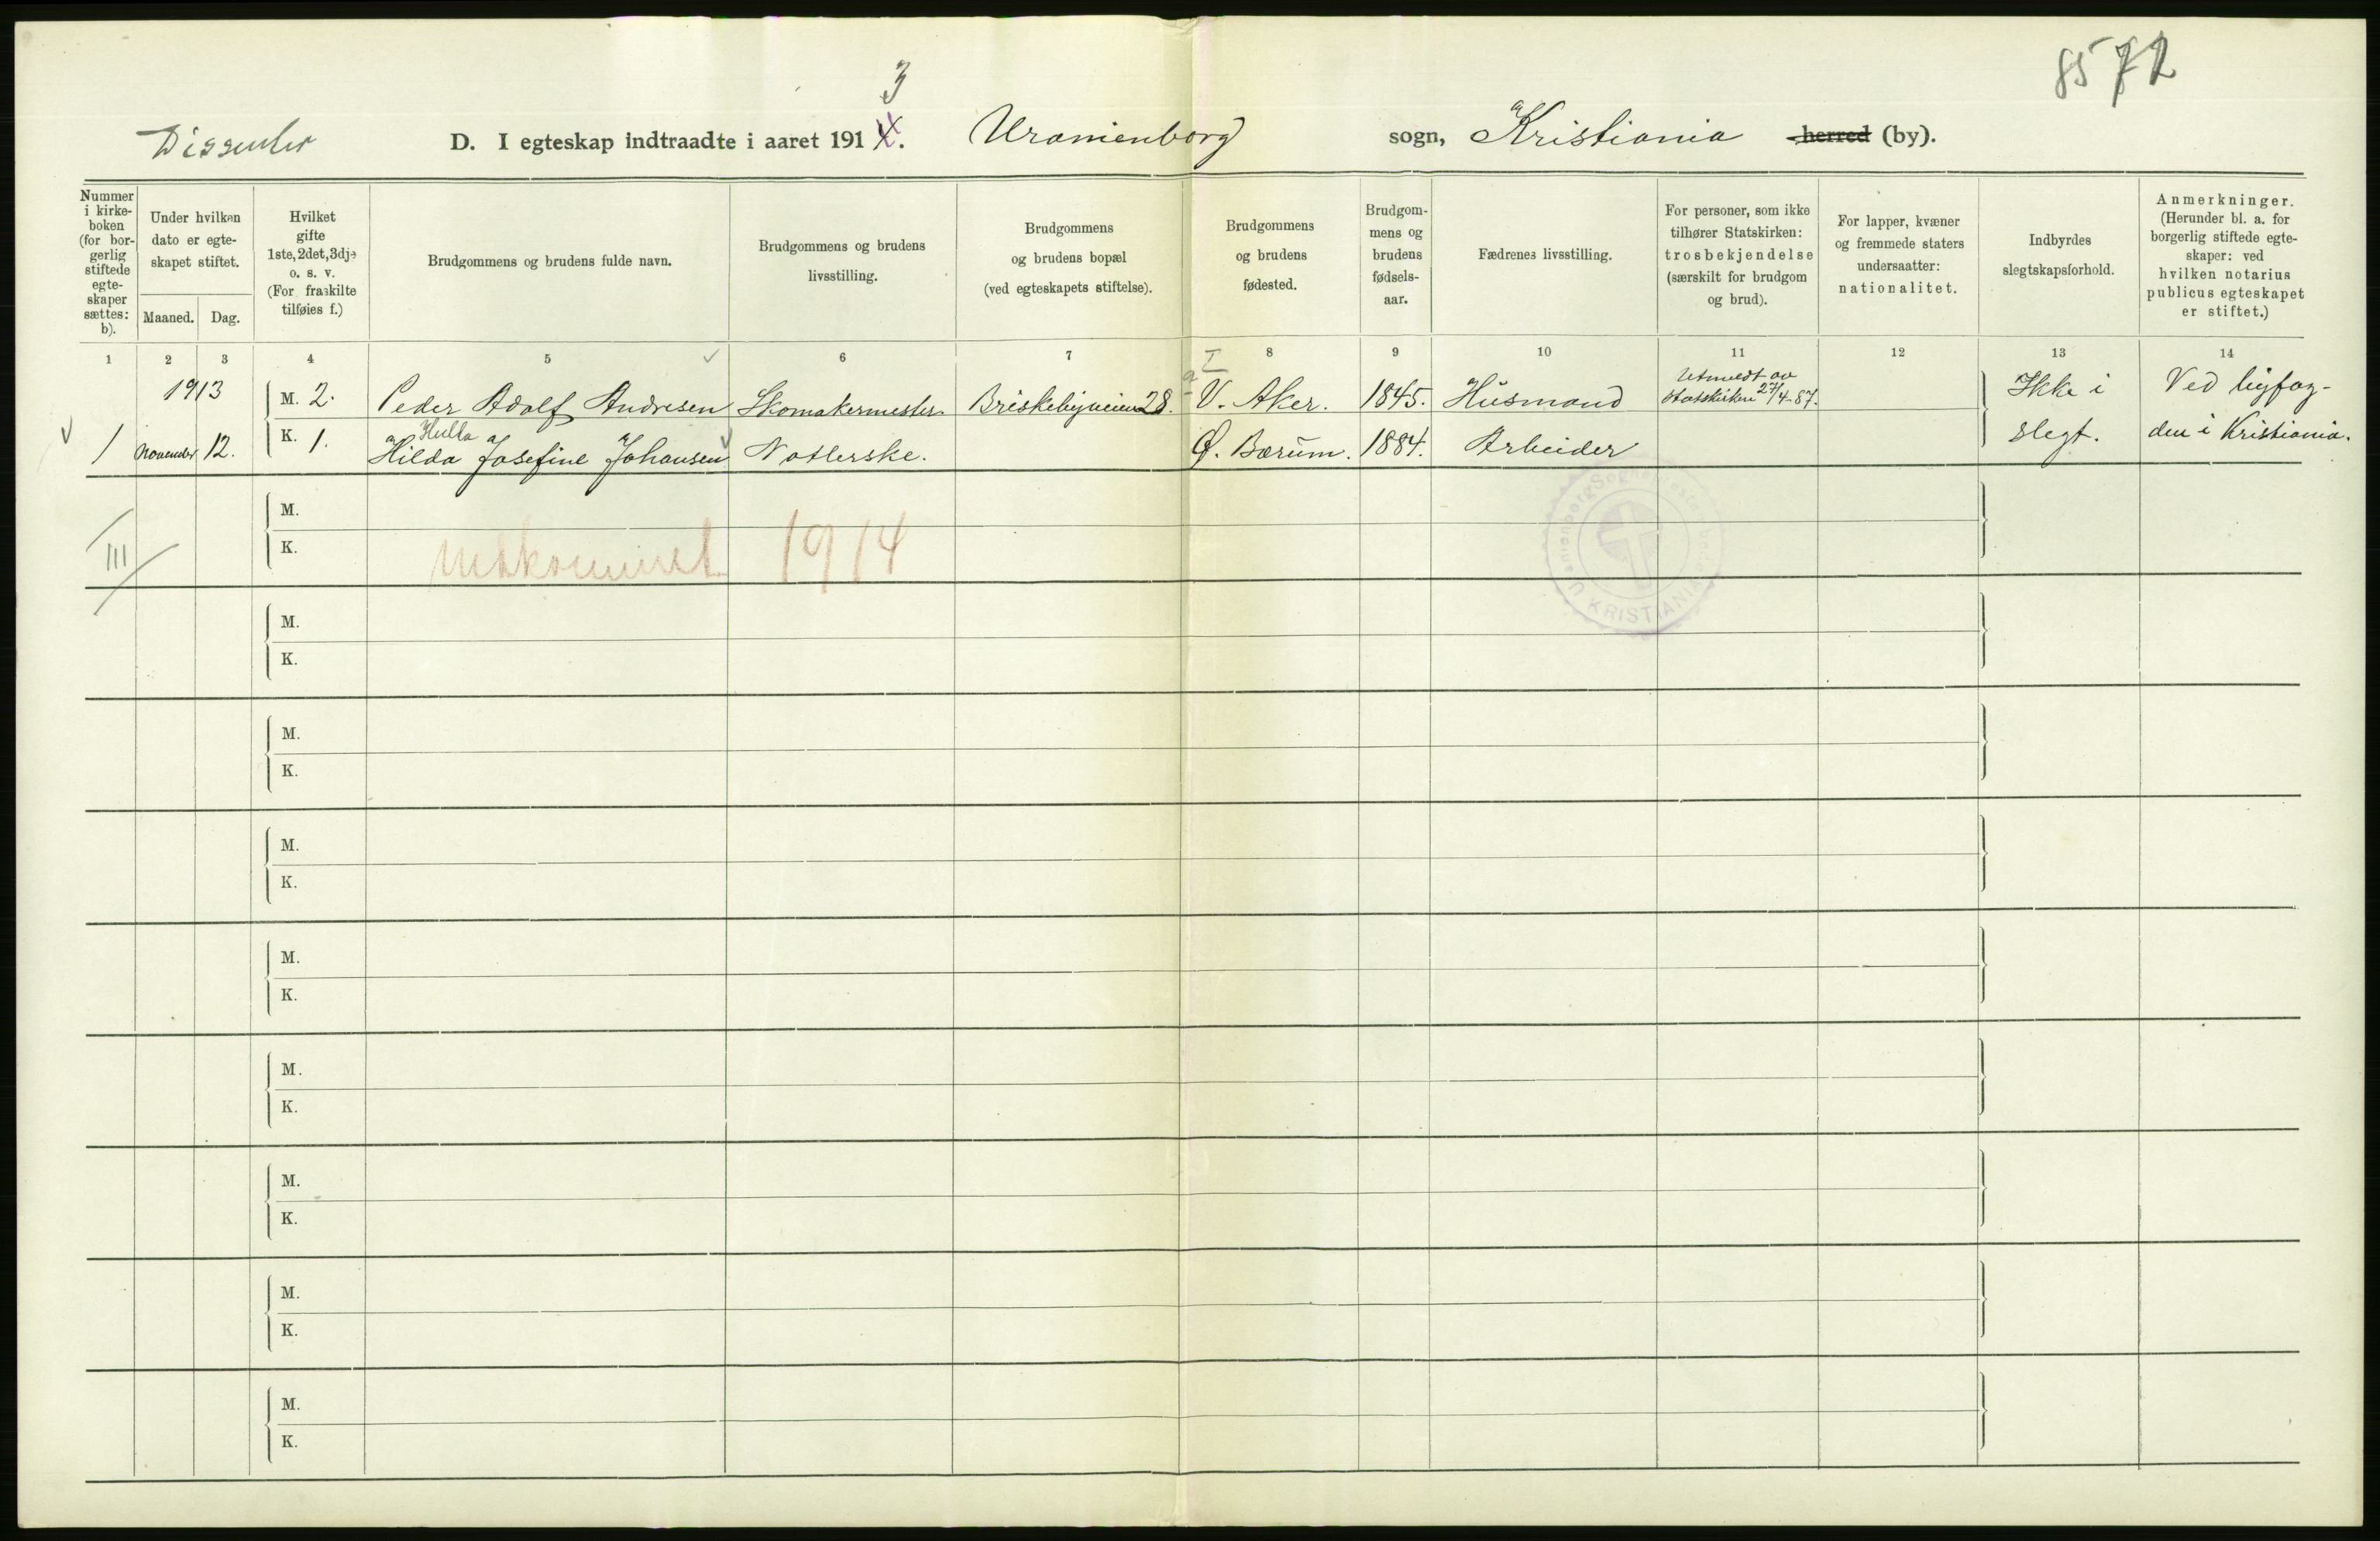 8572
3
Dissenter D. I egteskap indtraadte i aaret 1914. Uranienborg sogn, Kristiania herred (by).
Nummer i kirke-boken (for bor-gerlig stiftede egte-skaper sættes: b).
Under hvilken dato er egte-skapet stiftet.
Maaned. Dag.
Hvilket gifte 1ste, 2det, 3dje o. s. v. (For fraskilte tilføies f.)
Brudgommens og brudens fulde navn.
Brudgommens og brudens livsstilling.
Brudgommens og brudens bopæl (ved egteskapets stiftelse).
Brudgommens og brudens fødested.
Brudgom-mens og brudens fødsels-aar.
Fædrenes livsstilling.
For personer, som ikke tilhører Statskirken: trosbekjendelse (særskilt for brudgom og brud).
For lapper, kvæner og fremmede staters undersaatter: nationalitet.
Indbyrdes slegtskapsforhold.
Anmerkninger. (Herunder bl. a. for borgerlig stiftede egte-skaper: ved hvilken notarius publicus egteskapet er stiftet.)
1 2 3 4 5 6 7 8 9 10 11 12 13 14
I
1913 M. 2. Peder Adolf Andresen Skomakermester Briskebyveien 28. V. Aker. 1845. Husmand Utmeldt av Statskirken 27/4-87. Ikke i Ved byfog-
Hulla
1 November 12. K. 1. Hilda Josefine Johansen Natlerske. Ø. Bærum. 1884. Arbeider slegt. den i Kristiania.
M.
III K. indkommet 1914
Uranienborg Sogneprestembede KRISTIANIA
M.
K.
M.
K.
M.
K.
M.
K.
M.
K.
M.
K.
M.
K.
M.
K.